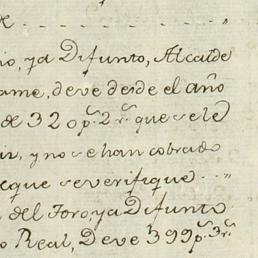 io, ya Difunto, Alcalde
ame, deve desde el año
de 320 p.s 2 r.s que se le
ar, y no se han cobrado
cque se verifique . . "
del Foro, ya Difunto
o Real, Deve 399 p.s 3 r.s